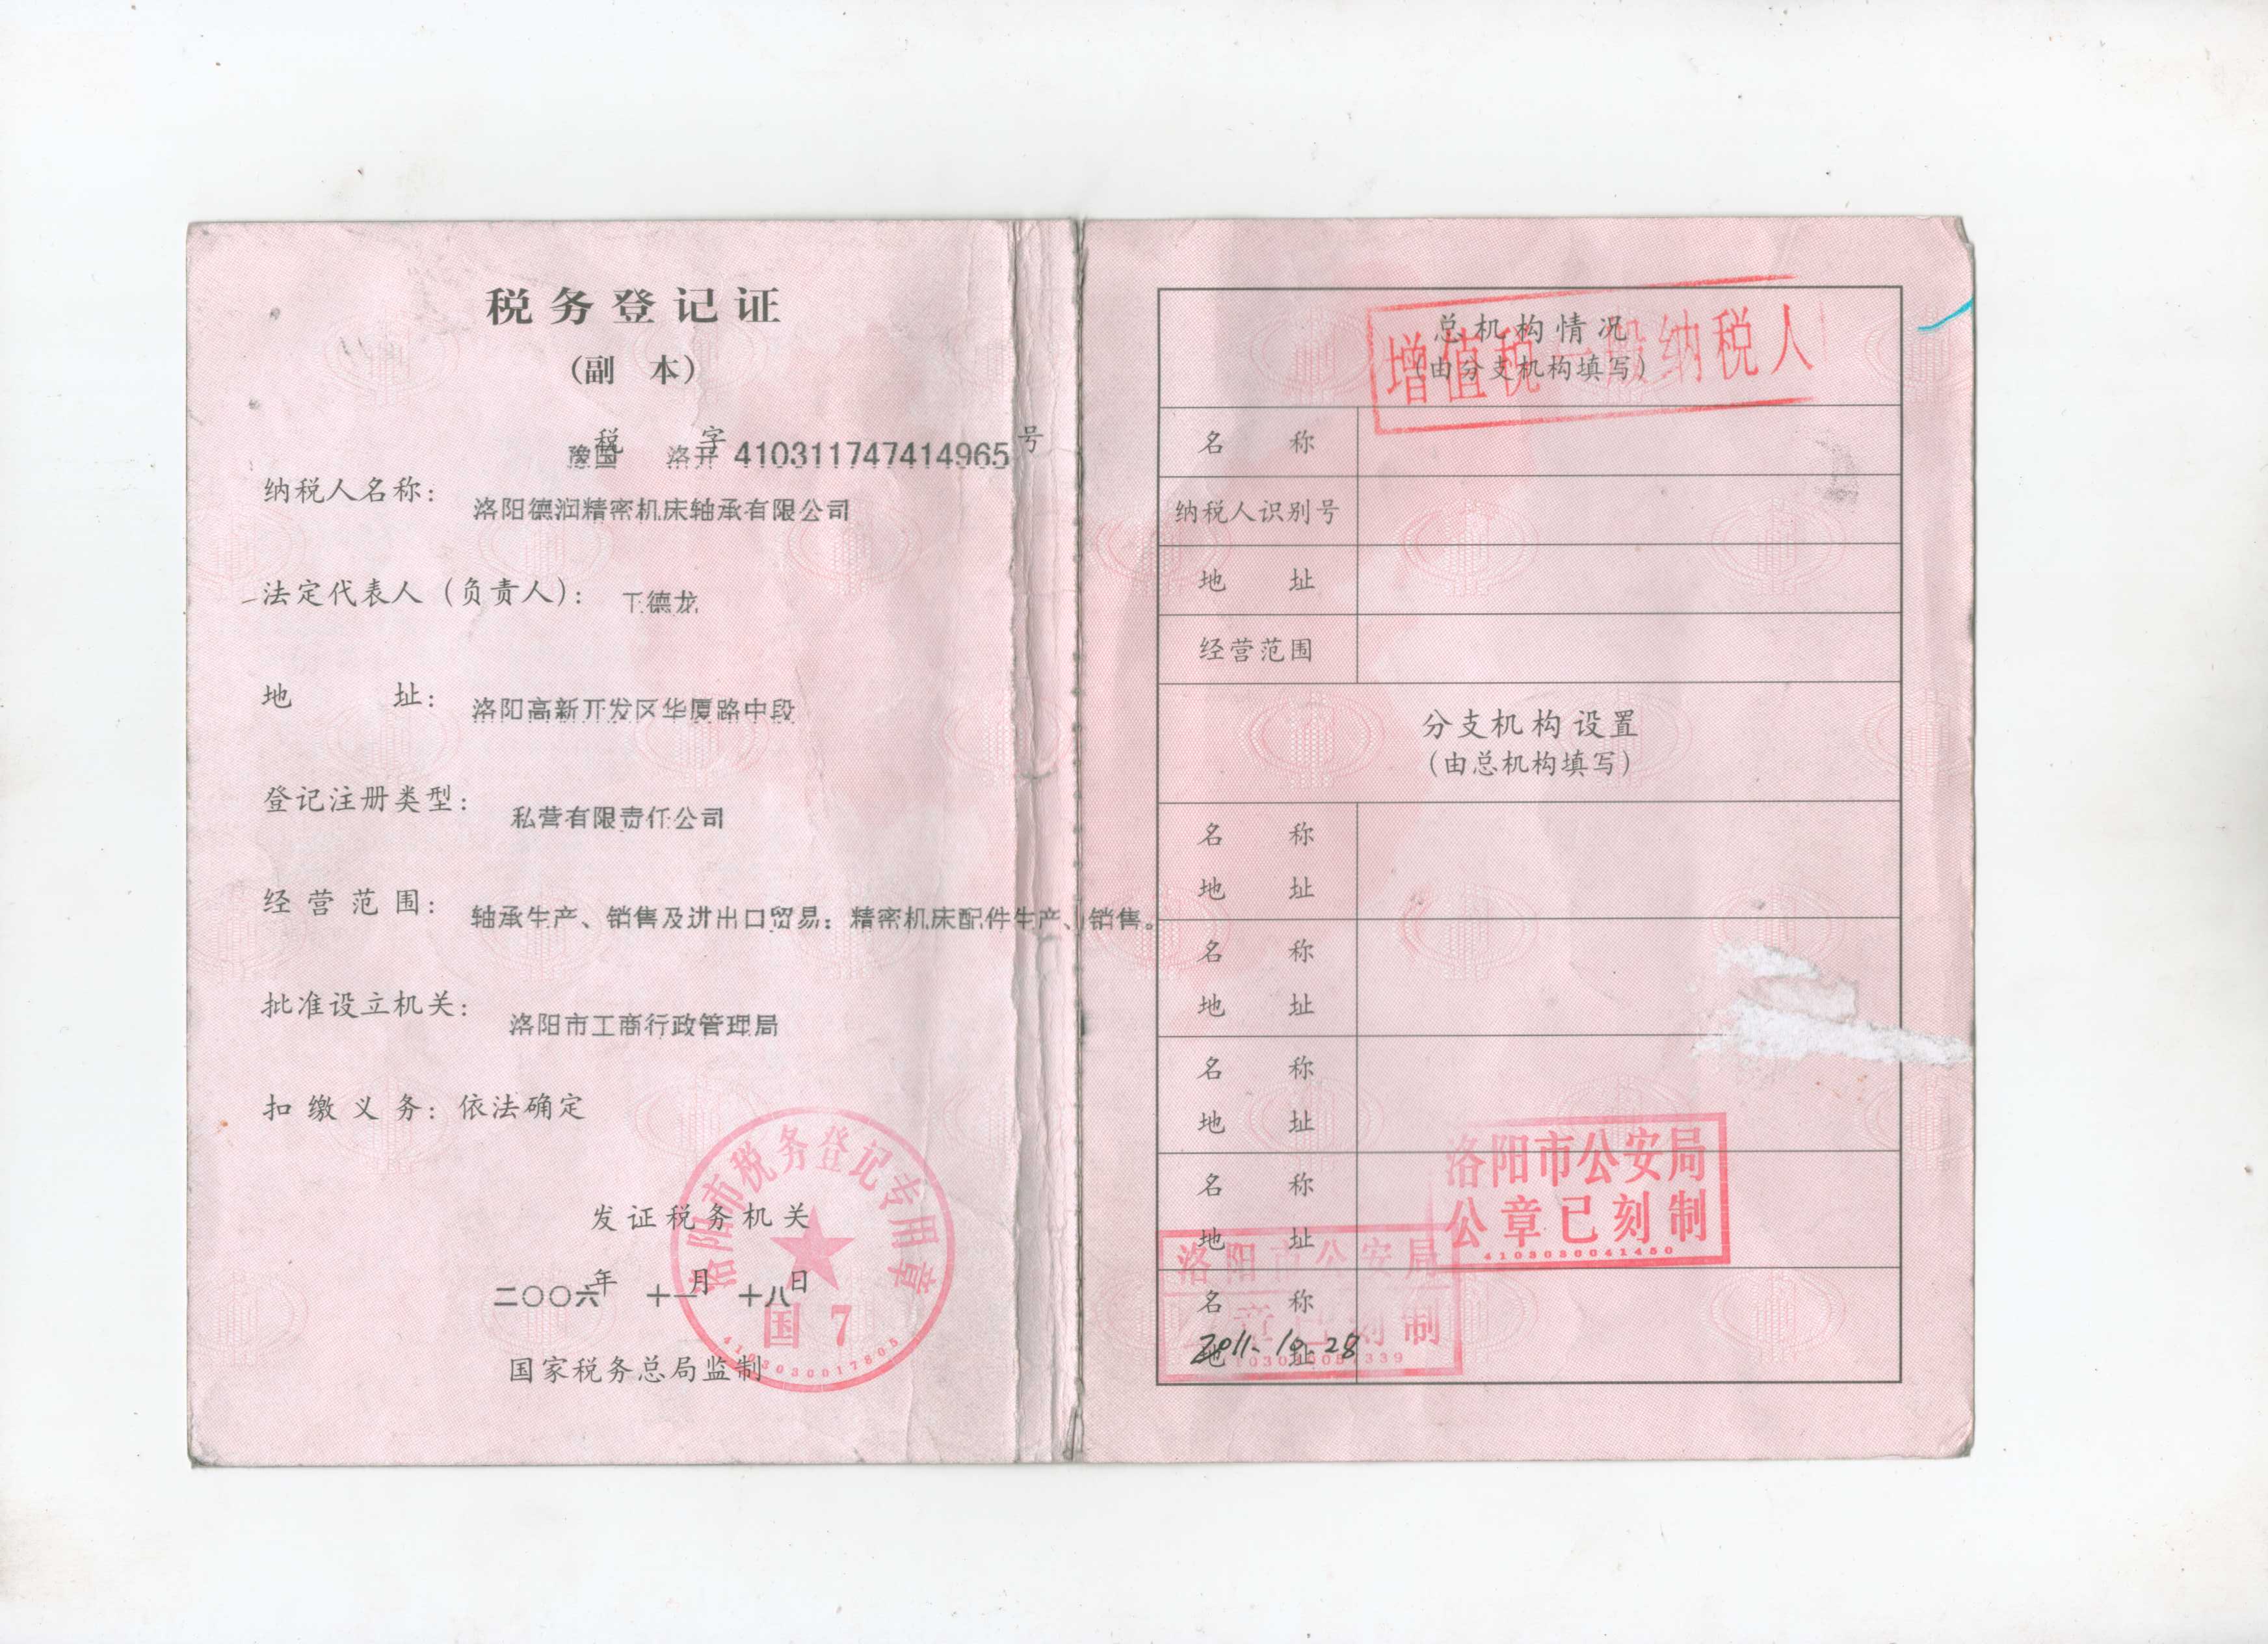 税务登记证
(副 本)
豫国税 洛开字 410311747414965 号
纳税人名称: 洛阳德润精密机床轴承有限公司
法定代表人(负责人): 王德龙
地 址: 洛阳高新开发区华厦路中段
登记注册类型: 私营有限责任公司
经营范围: 轴承生产、销售及进出口贸易;精密机床配件生产、销售。
批准设立机关: 洛阳市工商行政管理局
扣缴义务: 依法确定
发证税务机关
二〇〇六年 十一月 十八日
国家税务总局监制
洛阳市税务登记专用章
国 7
4103030017805
总机构情况
(由分支机构填写)
增值税一般纳税人
名 称
纳税人识别号
地 址
经营范围
分支机构设置
(由总机构填写)
名 称
地 址
名 称
地 址
名 称
地 址
名 称
地 址
名 称
地 址
洛阳市公安局
公章已刻制
4103030041450
洛阳市公安局
章已刻制
2011.10.28